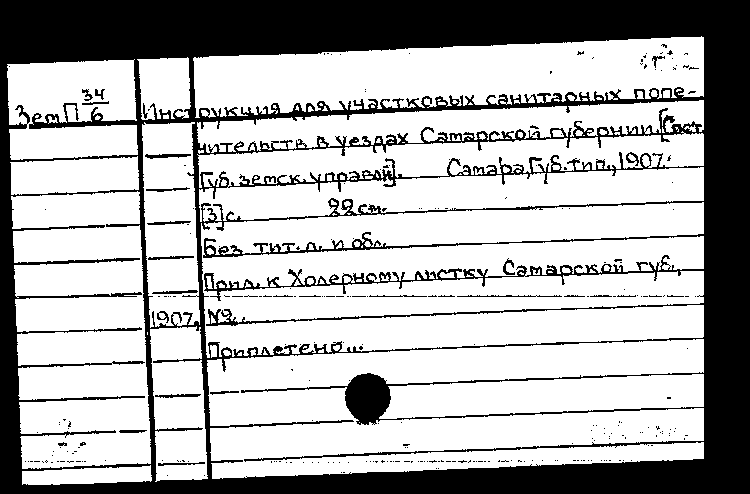 ЗемП 34/6 Инструкция для участковых санитарных попе-
чительств в уездах Самарской губернии. [Сост.
Губ. земск. управой]. Самара, Губ. тип., 1907.
[3] с. 22 см.
Без тит. л. и обл.
Прил. к Холерному листку Самарской губ.,
1907, №2.
Приплетено...